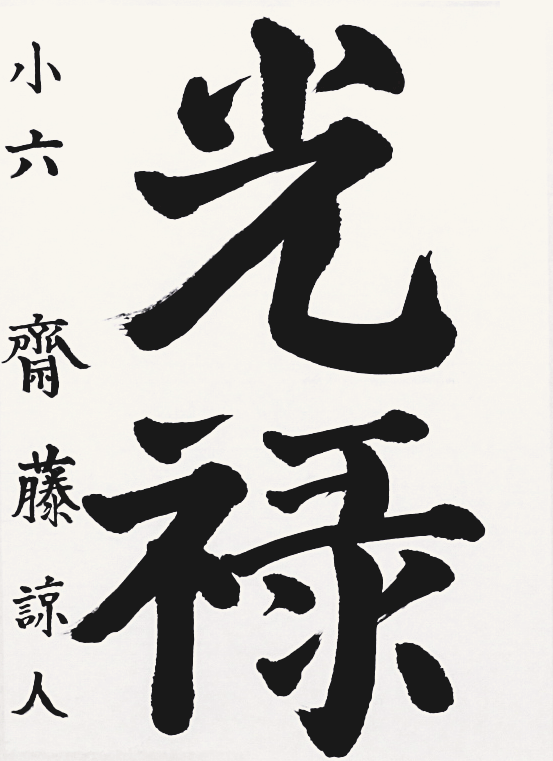 光禄
小六 齊藤諒人